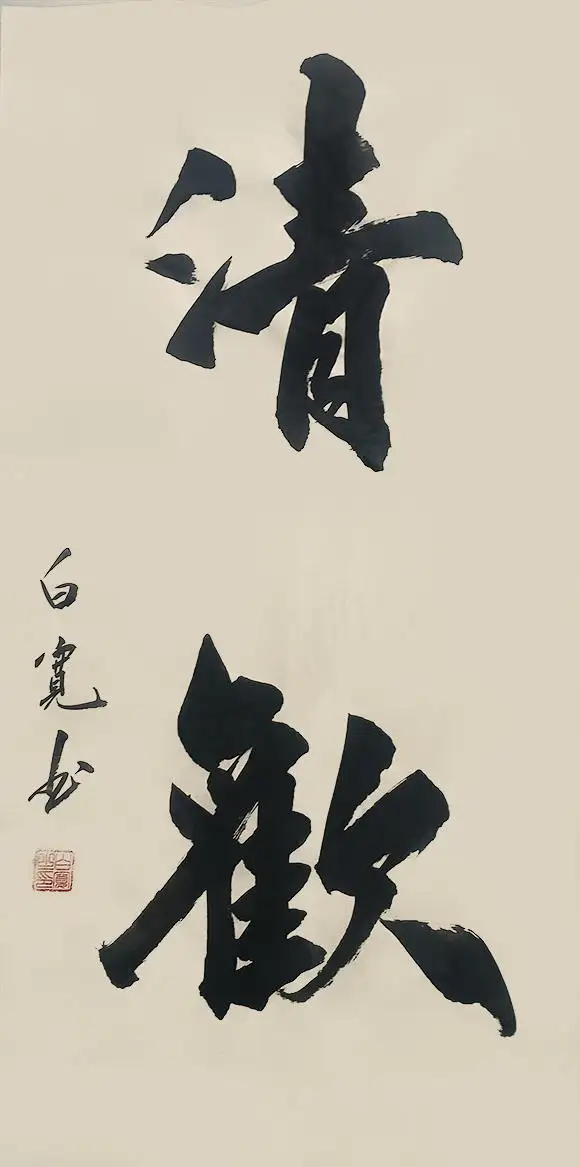 清歡
白寬书